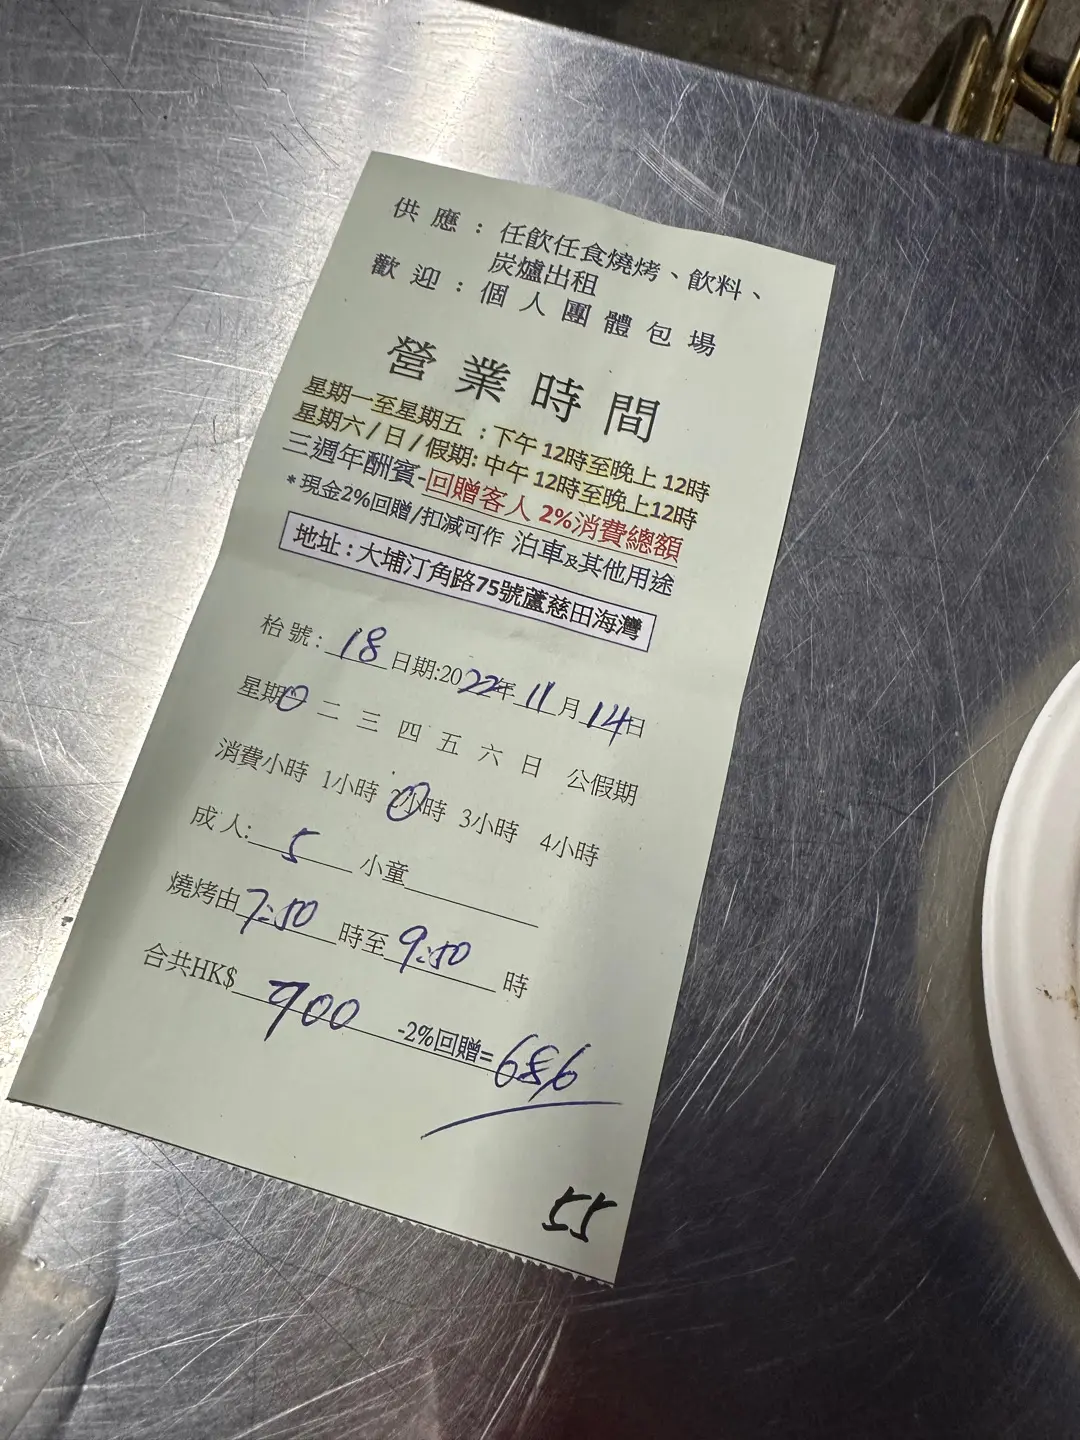 供應：任飲任食燒烤、飲料、
炭爐出租
歡迎：個人團體包場
營業時間
星期一至星期五 ：下午 12時至晚上 12時
星期六/日/假期: 中午 12時至晚上12時
三週年酬賓-回贈客人 2%消費總額
*現金2%回贈/扣減可作 泊車及其他用途
地址：大埔汀角路75號蘆慈田海灣
枱號: 18 日期:2022年 11月 14日
星期一 二 三 四 五 六 日 公假期
消費小時 1小時 2小時 3小時 4小時
成人: 5 小童
燒烤由 7:50 時至 9:50 時
合共HK$ 700 -2%回贈= 686
55